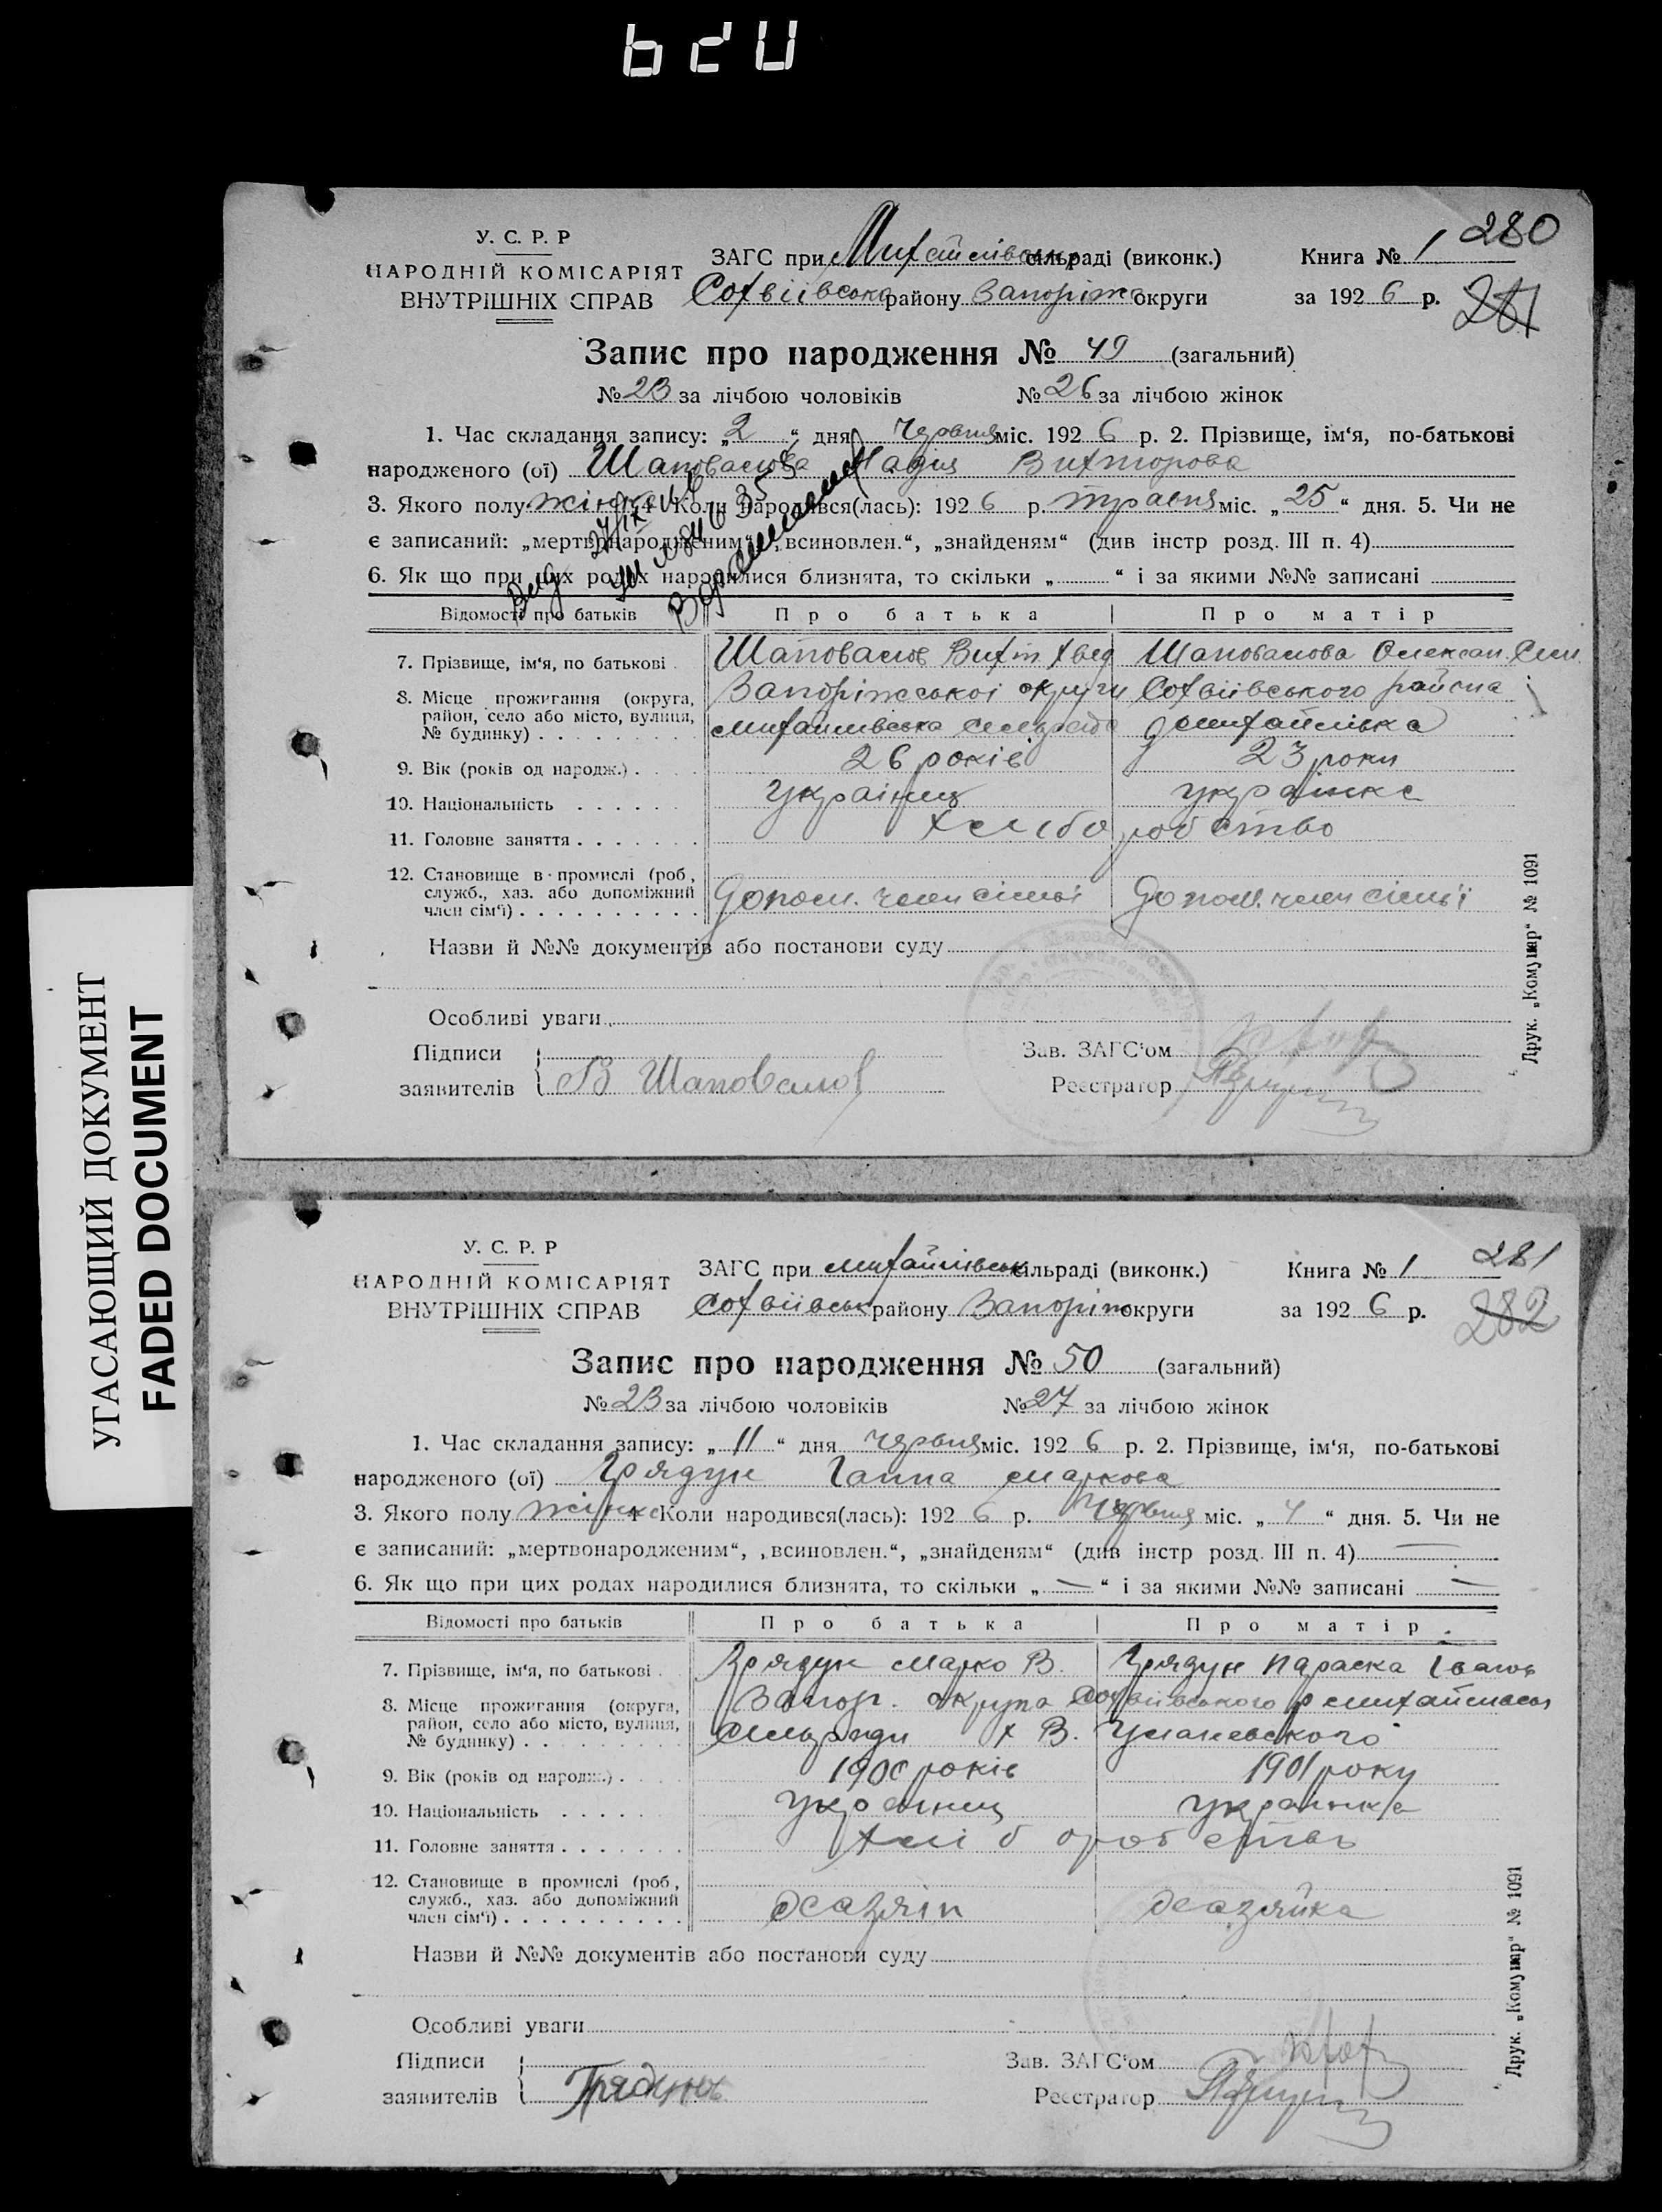 У. С. Р. Р
НАРОДНІЙ КОМІСАРІЯТ
ВНУТРІШНІХ СПРАВ
ЗАГС при Михайлівськ сільраді (виконк.)
Софіївськ району Запоріж округи
Книга № 1 280
за 1926 р. 281
Запис про народження № 49 (загальний)
№ 23 за лічбою чоловіків № 26 за лічбою жінок
1. Час складання запису: „2“ дня червня міс. 1926 р. 2. Прізвище, ім‘я, по-батькові
народженого (ої) Шаповалова Надія Вихторова
3. Якого полу жінка 4. Коли народився(лась): 1926 р. травня міс. „25“ дня. 5. Чи не
є записаний: „мертвонародженим“, „всиновлен.“, „знайденям“ (див інстр розд. III п. 4)
6. Як що при цих родах народилися близнята, то скільки „ “ і за якими №№ записані
Відомості про батьків Про батька Про матір
7. Прізвище, ім‘я, по батькові Шаповалов Вихт. Шаповалова Олексан.
8. Місце прожигання (округа, район, село або місто, вулиця, № будинку) Запоріжської округи Софіївського района
михайлівська сельрада михайлівка
9. Вік (років од народж.) 26 років 23 роки
10. Національність українец українка
11. Головне заняття хлібо робство
12. Становище в промислі (роб, служб., хаз. або допоміжний член сім‘ї) допом. член сімьї допом. член сімьї
Назви й №№ документів або постанови суду
Особливі уваги
Підписи заявителів В Шаповалов
Зав. ЗАГС‘ом
Реєстратор
Друк. „Комунар“ № 1091
УГАСАЮЩИЙ ДОКУМЕНТ
FADED DOCUMENT
У. С. Р. Р
НАРОДНІЙ КОМІСАРІЯТ
ВНУТРІШНІХ СПРАВ
ЗАГС при михайлівськ сільраді (виконк.)
Софіївськ району Запоріж округи
Книга № 1 281
за 1926 р. 282
Запис про народження № 50 (загальний)
№ 23 за лічбою чоловіків № 27 за лічбою жінок
1. Час складання запису: „11“ дня червня міс. 1926 р. 2. Прізвище, ім‘я, по-батькові
народженого (ої) Грядун Ганна маркова
3. Якого полу жінка 4 Коли народився(лась): 1926 р. червня міс. „4“ дня. 5. Чи не
є записаний: „мертвонародженим“, „всиновлен.“, „знайденям“ (див інстр розд. III п. 4) —
6. Як що при цих родах народилися близнята, то скільки „—“ і за якими №№ записані —
Відомості про батьків Про батька Про матір
7. Прізвище, ім‘я, по батькові Грядун марко В. Грядун Параска Іванов
8. Місце прожигання (округа, район, село або місто, вулиця, № будинку) Запор. округа Софіївського р михайлівськ
сельради х В.
9. Вік (років од народж.) 1900 років 1901 року
10. Національність українец українка
11. Головне заняття хлі б ороб ство
12. Становище в промислі (роб, служб., хаз. або допоміжний член сім‘ї) хазяін хазяйка
Назви й №№ документів або постанови суду
Особливі уваги
Підписи заявителів Грядунъ
Зав. ЗАГС‘ом
Реєстратор
Друк. „Комунар“ № 1091